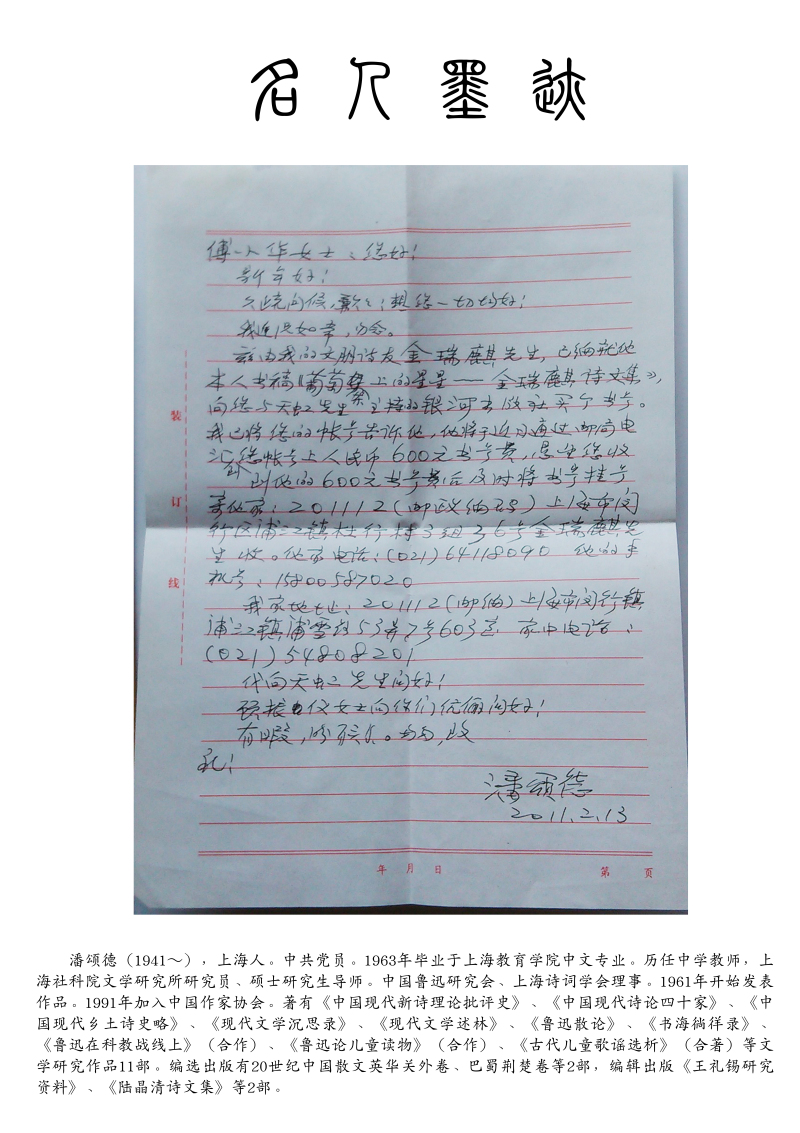 名人墨迹
女士：您好！
新年好！
久疏问候，歉歉！想您一切均好！
我近况如常，勿念。
兹由我的文朋诗友金瑞麒先生，已编就他
本人书稿《葡萄架上的星星——金瑞麒诗文集》，
向您与天虹先生主持的银河出版社买个书号。
我已将您的帐号告诉他，他将于近日通过邮局电
汇您帐号上人民币600元书号费，恳望您收
到他的600元书号费后及时将书号挂号
寄他家：201112（邮政编码）上海市闵
行区浦江镇杜行村3组36号金瑞麒先
生收。他家电话：（021）64118090 他的手
机号：15800587020
我家地址：201112（邮编）上海市闵行镇
浦江镇浦雪路53弄7号603室 家中电话：
（021）54808201
代向天虹先生问好！
女士向你们伉俪问好！
有暇，
祝！
潘颂德
2011.2.13
装
订
线
年 月 日
第 页
潘颂德（1941～），上海人。中共党员。1963年毕业于上海教育学院中文专业。历任中学教师，上
海社科院文学研究所研究员、硕士研究生导师。中国鲁迅研究会、上海诗词学会理事。1961年开始发表
作品。1991年加入中国作家协会。著有《中国现代新诗理论批评史》、《中国现代诗论四十家》、《中
国现代乡土诗史略》、《现代文学沉思录》、《现代文学述林》、《鲁迅散论》、《书海徜徉录》、
《鲁迅在科教战线上》（合作）、《鲁迅论儿童读物》（合作）、《古代儿童歌谣选析》（合著）等文
学研究作品11部。编选出版有20世纪中国散文英华关外卷、巴蜀荆楚卷等2部，编辑出版《王礼锡研究
资料》、《陆晶清诗文集》等2部。